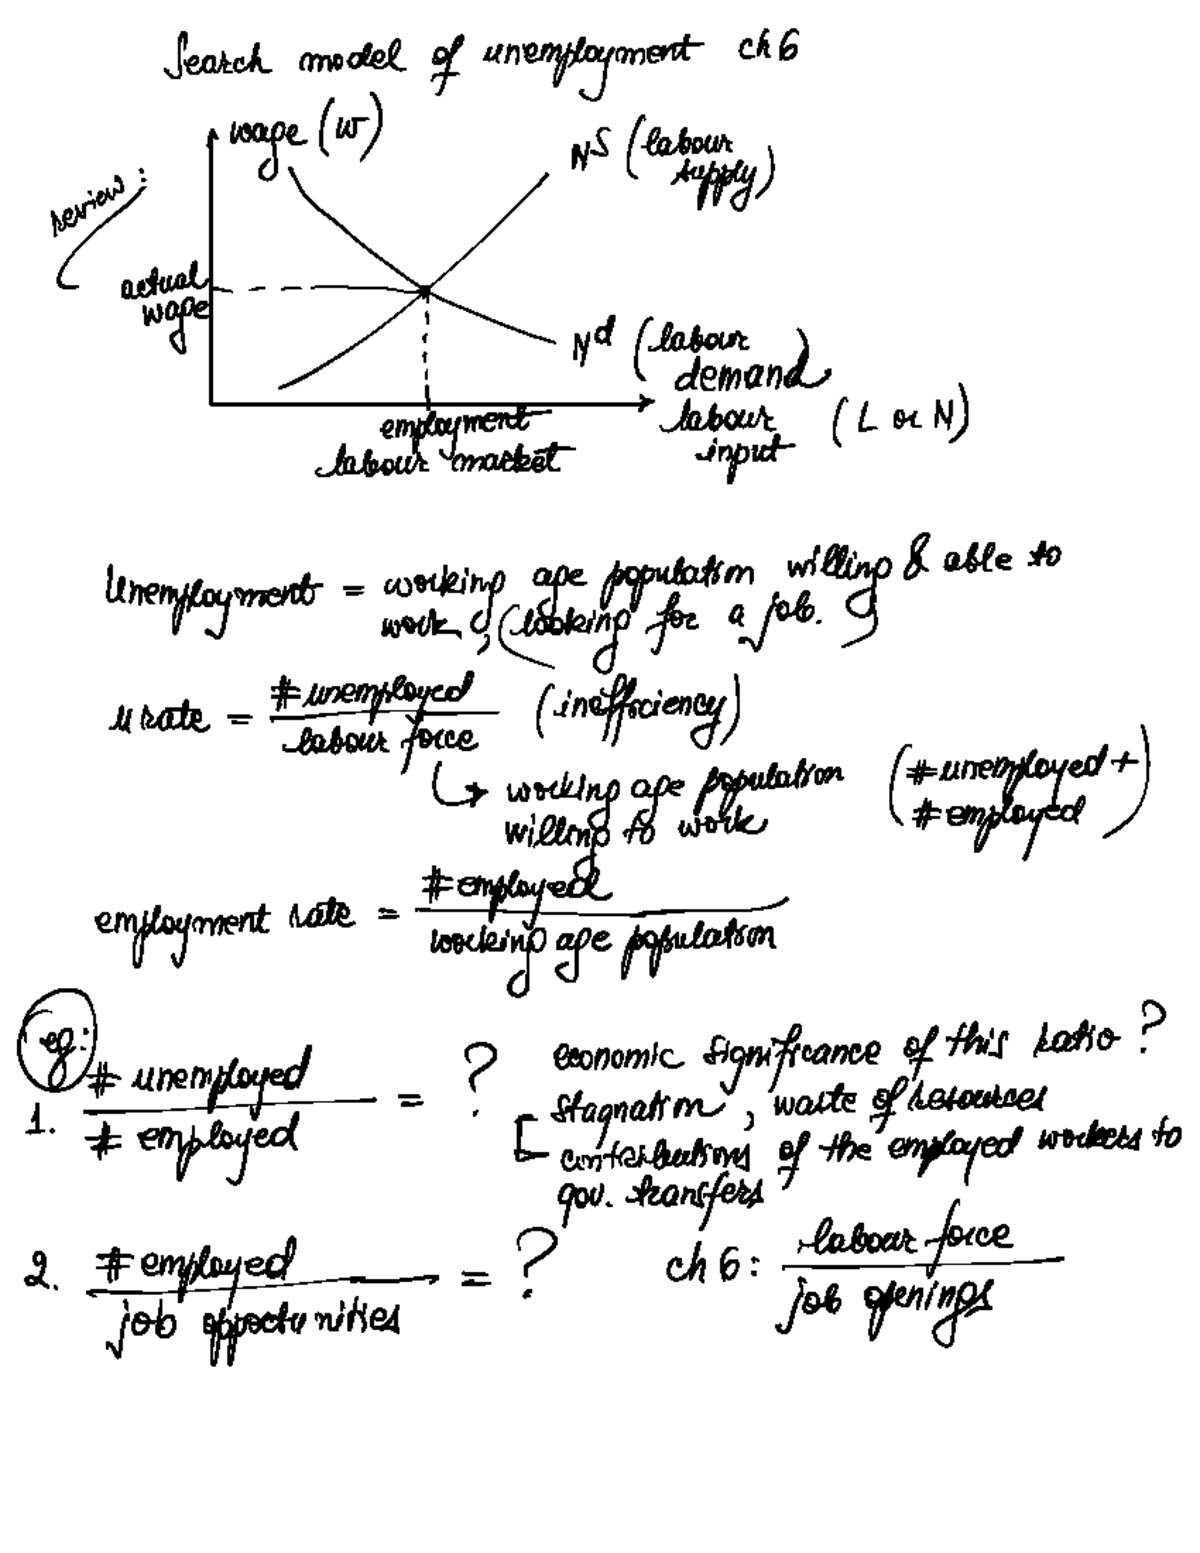 Search model of unemployment ch 6
review:
wage (W)
N^S (labour
supply)
actual
wage
N^d (labour
demand
employment
labour
input
(L or N)
labour market
Unemployment = working age population willing & able to
work, (looking for a job.)
u rate = # unemployed / labour force (inefficiency)
↳ working age population
willing to work
(# unemployed +
# employed)
employment rate = # employed / working age population
eg:
1. # unemployed / # employed = ?
economic significance of this ratio?
stagnation, waste of resources
contributions of the employed workers to
gov. transfers
2. # employed / job opportunities = ?
ch 6: labour force / job openings